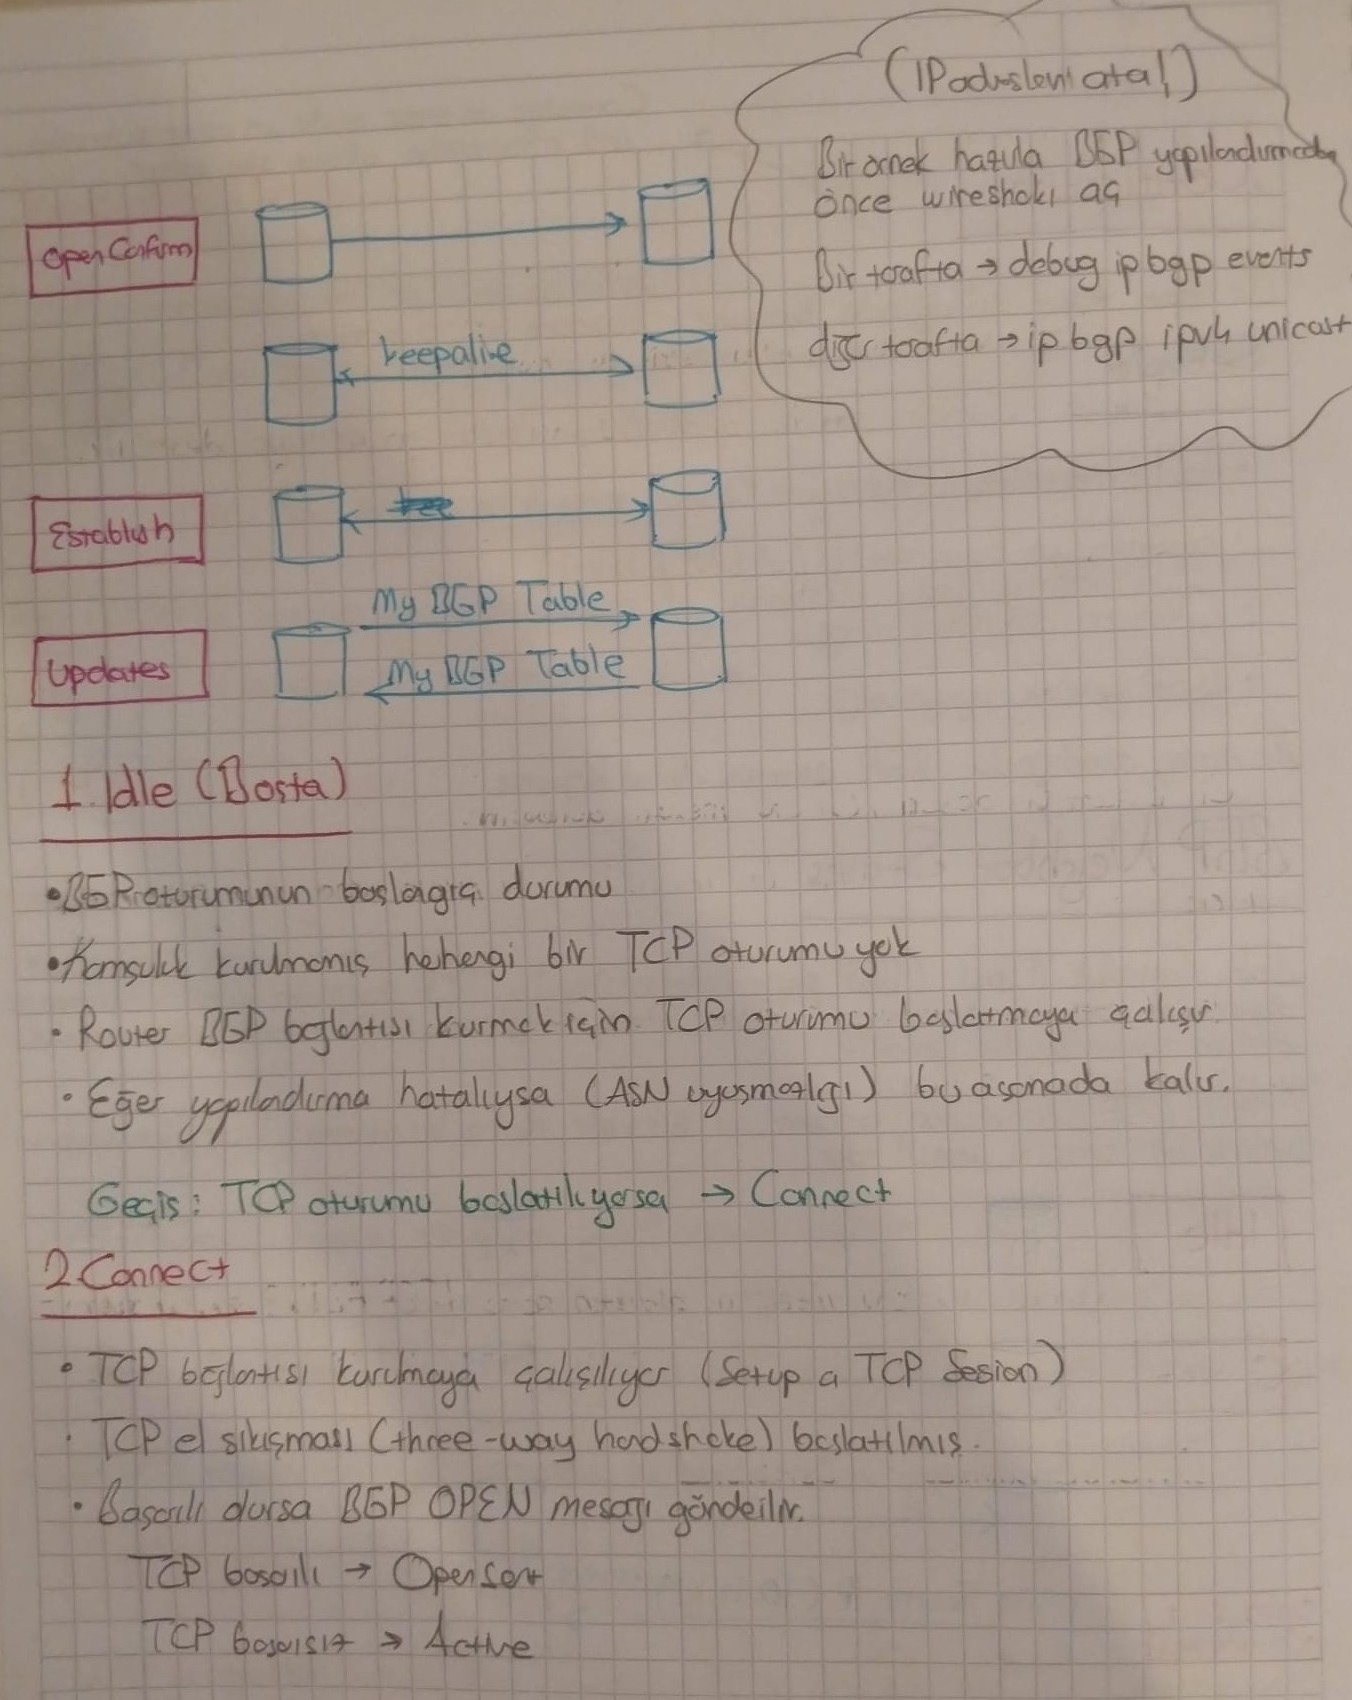 (IP adresleri ata!)
Bir örnek hazırla BGP yapılandırmadan
önce wireshakı aç
Bir tarafta → debug ip bgp events
diğer tarafta → ip bgp ipv4 unicast
Open Confirm
keepalive
Establish
My BGP Table
Updates
My BGP Table
1. Idle (Boşta)
• BGP oturumunun başlangıç durumu
• Komşuluk kurulmamış herhengi bir TCP oturumu yok
• Router BGP bağlantısı kurmak için TCP oturumu başlatmaya çalışır
• Eğer yapılandırma hatalıysa (ASN uyuşmazlığı) bu aşamada kalır.
Geçiş: TCP oturumu başlatılıyorsa → Connect
2 Connect
• TCP bağlantısı kurulmaya çalışılıyor (Setup a TCP Sesion)
• TCP el sıkışması (three-way handshake) başlatılmış.
• Başarılı olursa BGP OPEN mesajı gönderilir.
TCP başarılı → OpenSent
TCP başarısız → Active